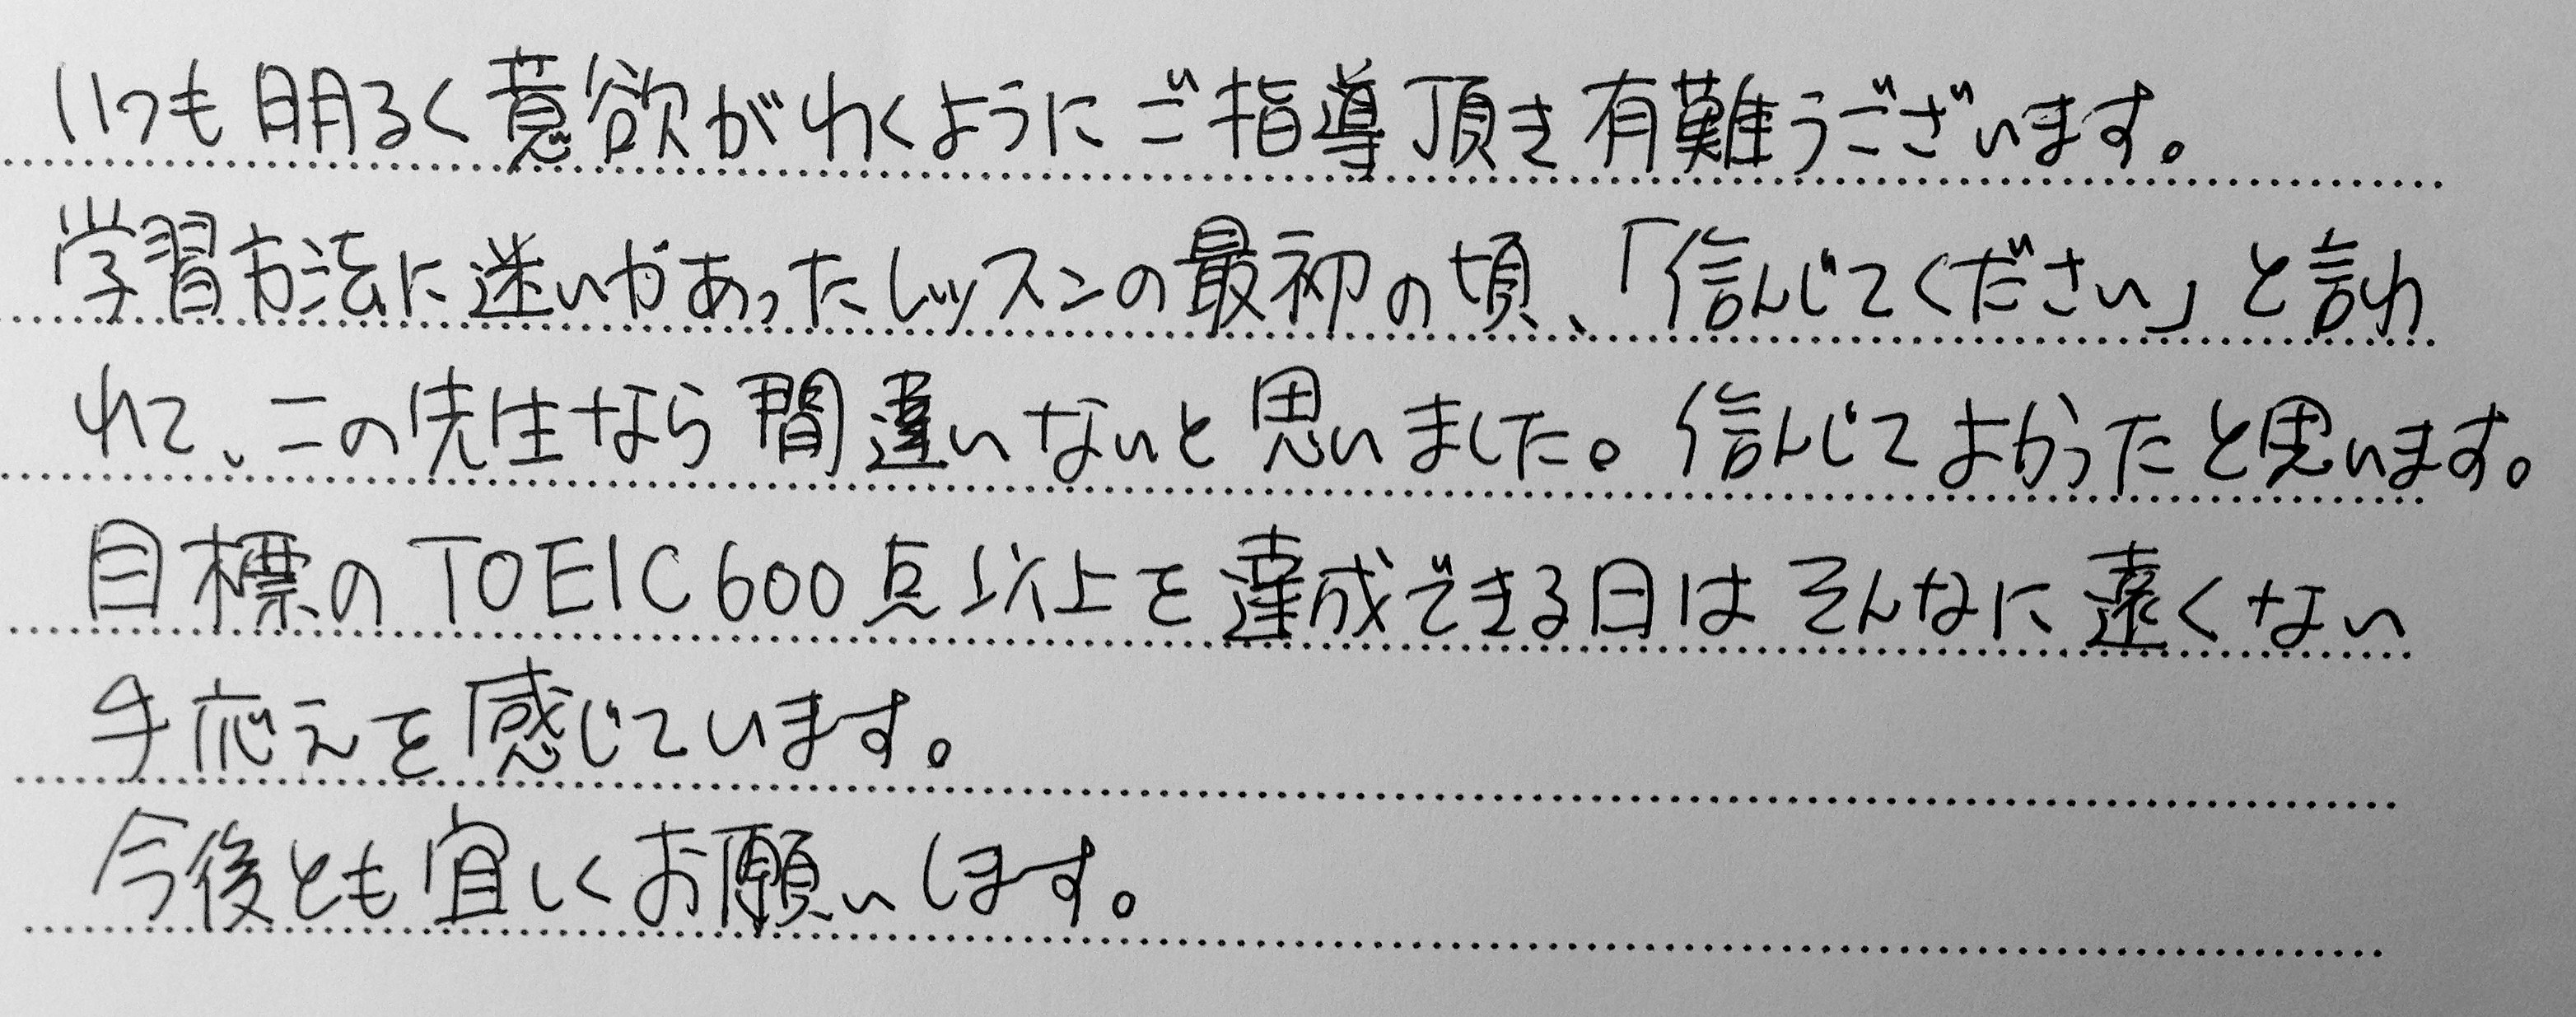 いつも明るく意欲がわくようにご指導頂き有難うございます。
学習方法に迷いがあったレッスンの最初の頃、「信じてください」と言わ
れて、この先生なら間違いないと思いました。信じてよかったと思います。
目標のTOEIC600点以上を達成できる日はそんなに遠くない
手応えを感じています。
今後とも宜しくお願いします。